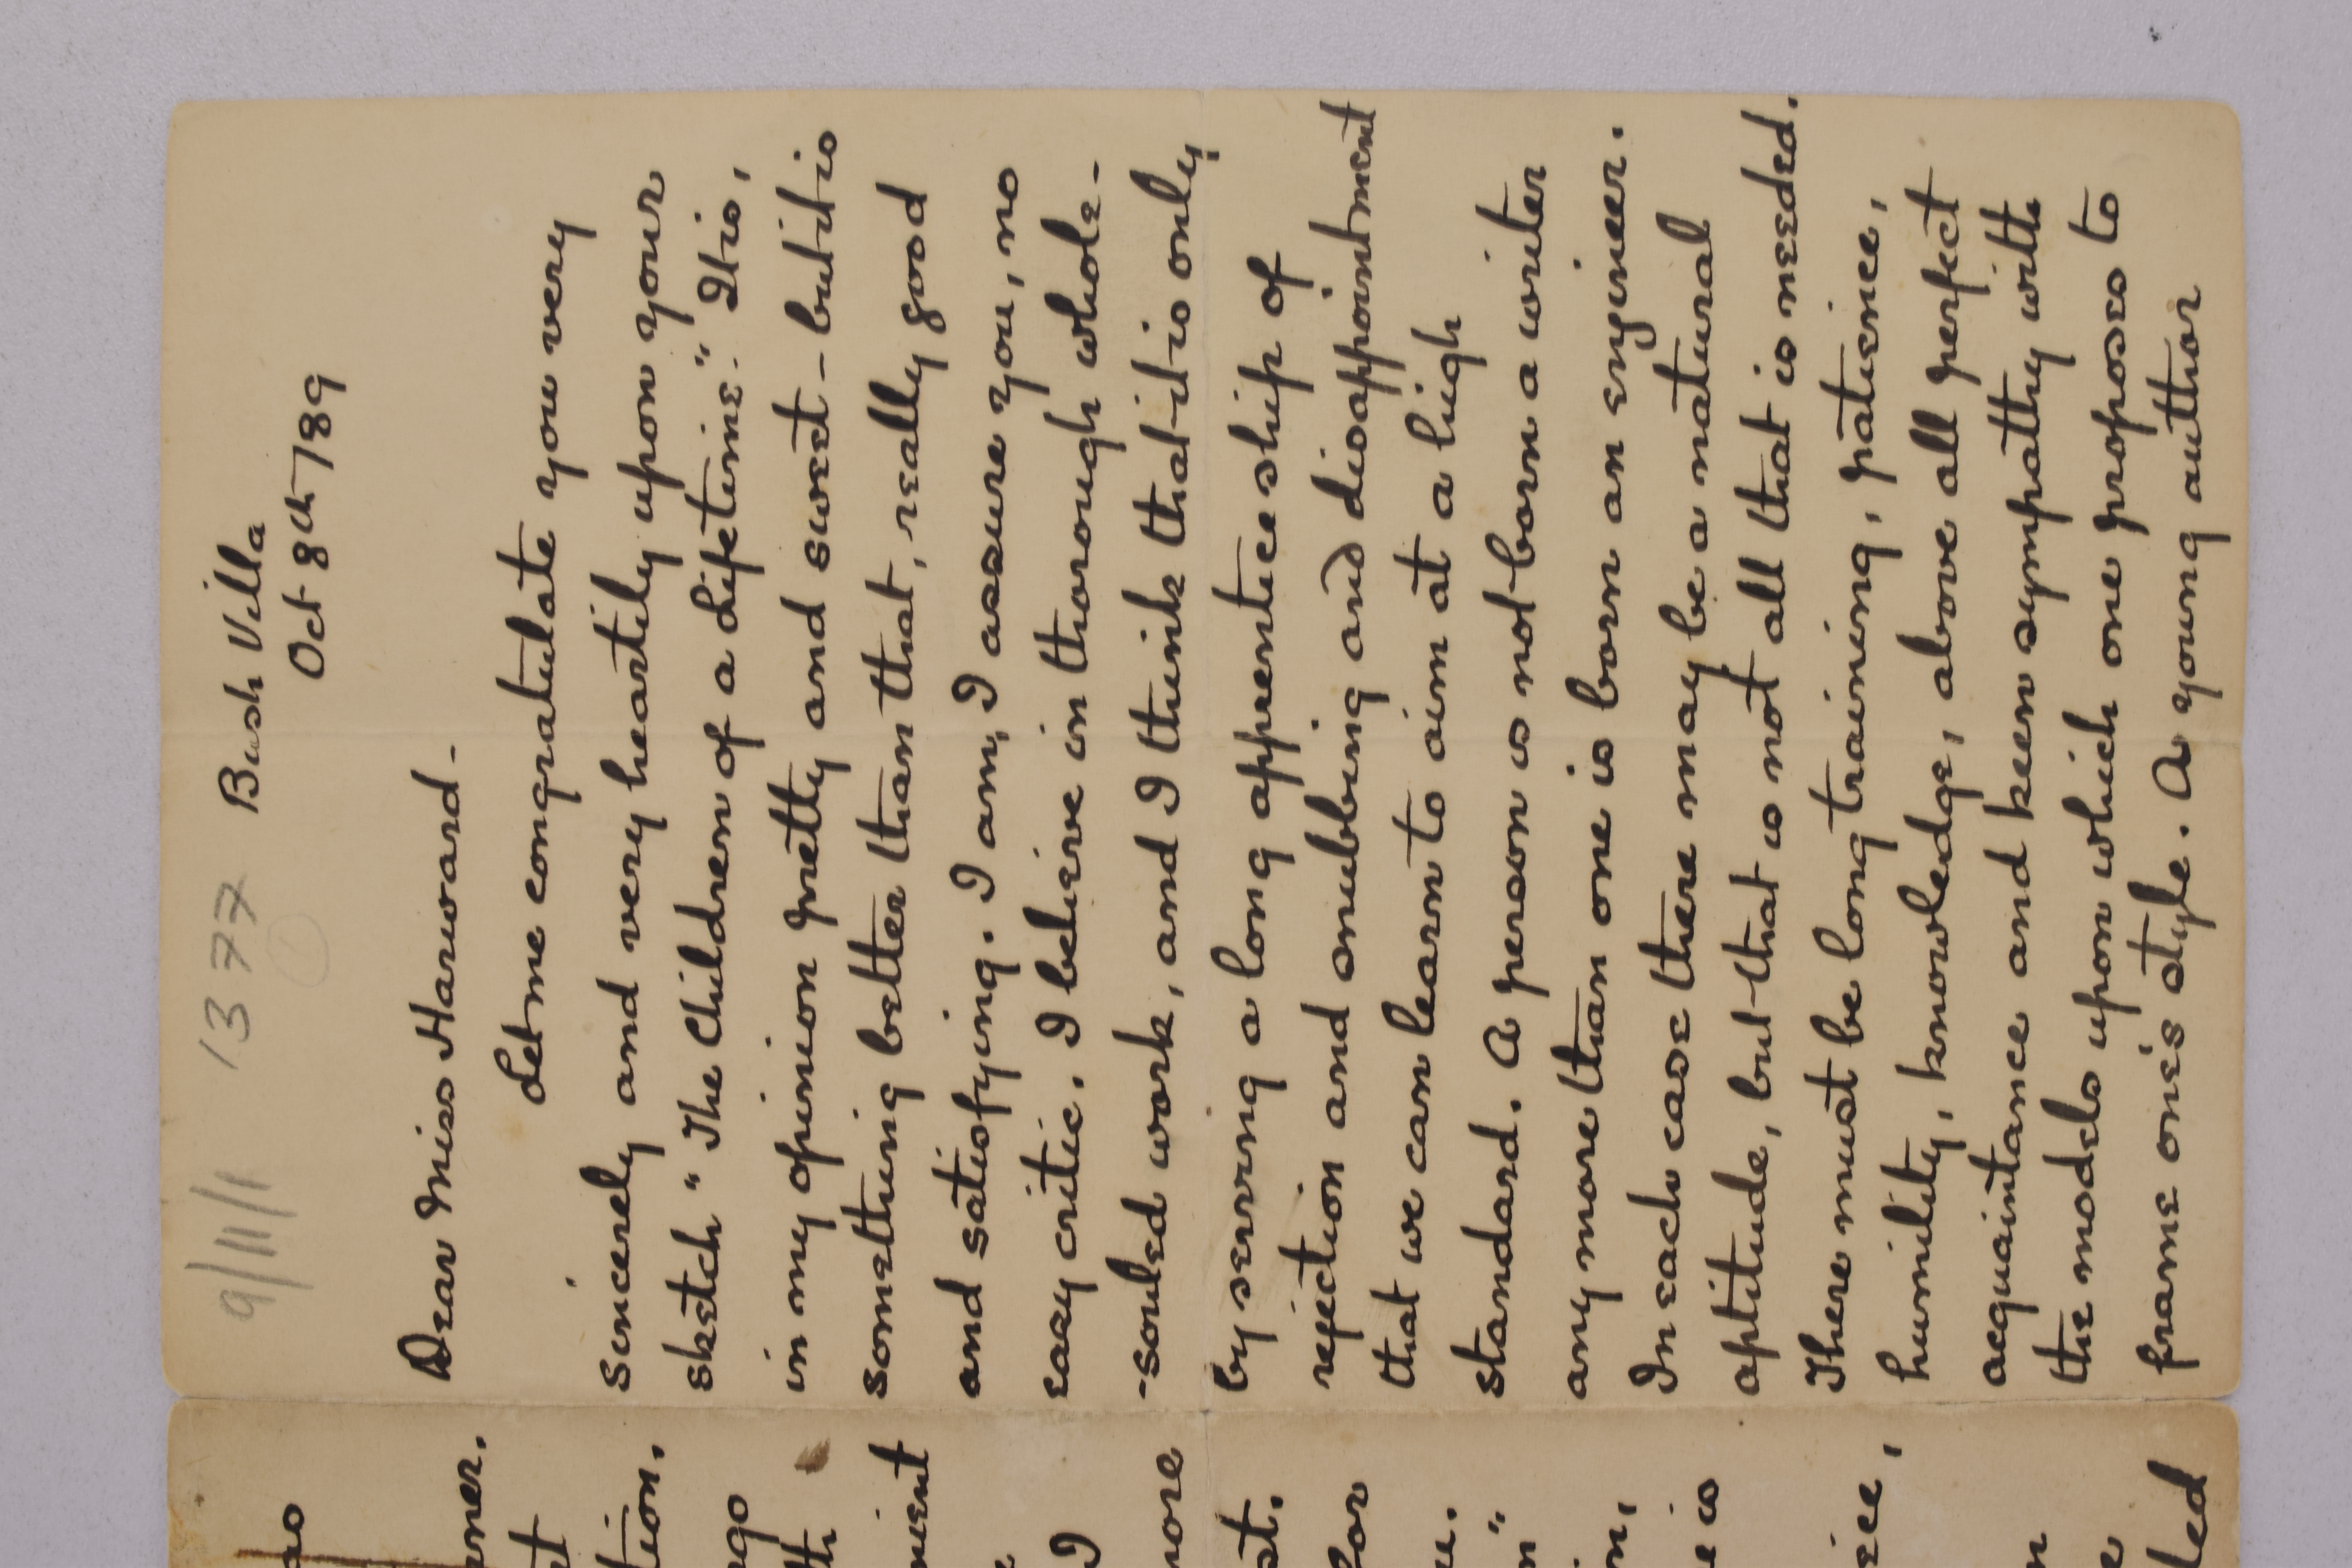 9/11/1 1377 Bush Villa
1
Oct 8th/89
Dear Miss Harward-
Let me congratulate you very
sincerely and very heartily upon your
sketch "The Children of a Lifetime." It is,
in my opinion pretty and sweet - but it is
something better than that, really good
and satisfying. I am, I assure you, no
easy critic. I believe in thorough whole-
-souled work, and I think that it is only
by serving a long apprenticeship of
rejection and snubbing and disappointment
that we can learn to aim at a high
standard. A person is not born a writer
any more than one is born an engineer.
In each case there may be a natural
aptitude, but that is not all that is needed.
There must be long training, patience,
humility, knowledge, above all perfect
acquaintance and keen sympathy with
the models upon which one proposes to
frame one's style. A young author
ao
ner.
t
tion.
ago
th
ment
e
I
more
st.
for
u.
n"
in,
e is
ice,
n
e
led